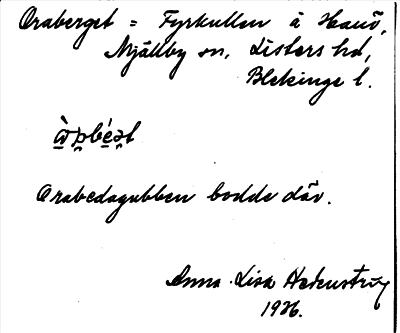 Oraberget = Fyrkullen å Hanö,
Mjällby sn, Listers hd,
Blekinge l.
Orabedagubben bodde där.
Anna-Lisa
1926.